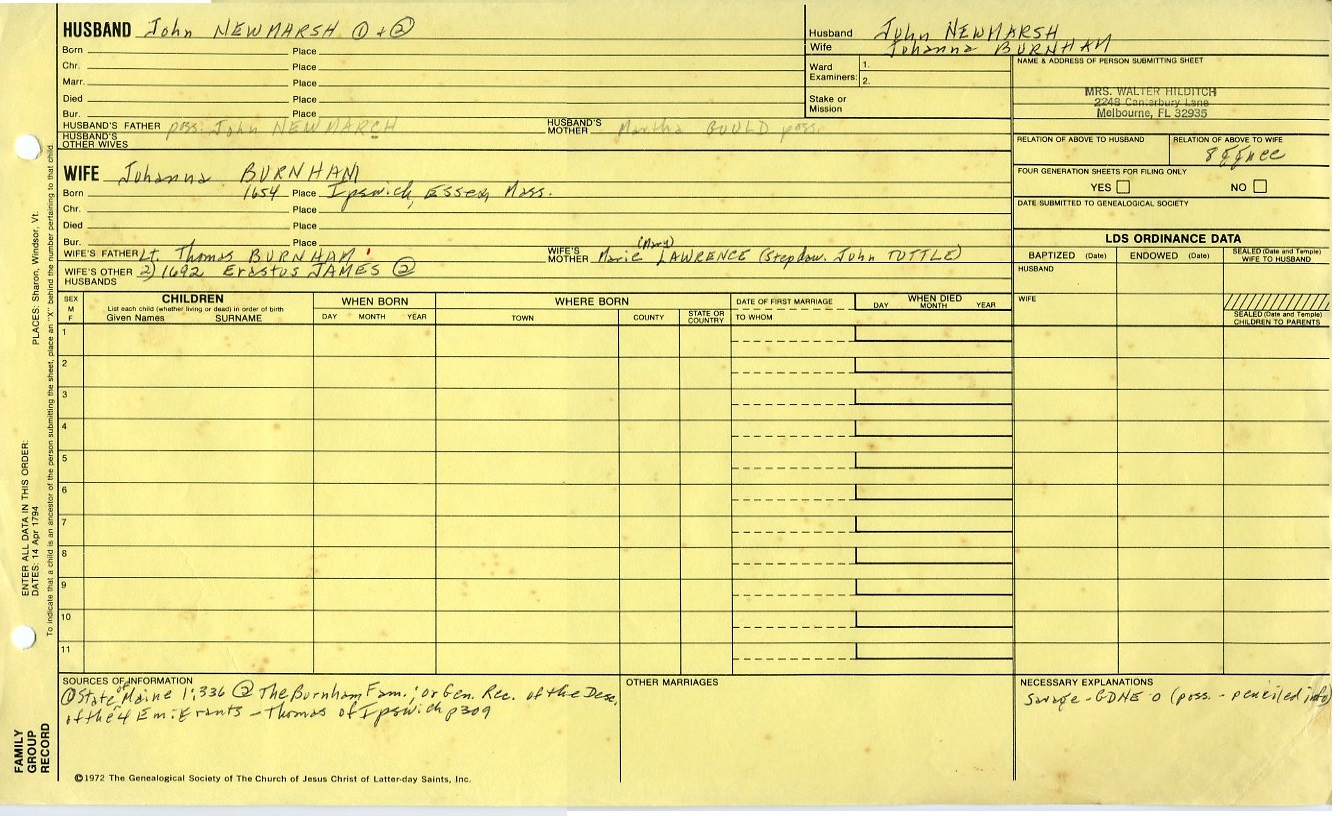 HUSBAND John NEWMARSH ① & ②
Born Place
Chr. Place
Marr. Place
Died Place
Bur. Place
HUSBAND'S FATHER poss. John NEWMARCH HUSBAND'S MOTHER Martha GOULD poss.
HUSBAND'S OTHER WIVES
Husband John NEWMARSH
Wife Johanna BURNHAM
Ward Examiners: 1.
2.
Stake or Mission
NAME & ADDRESS OF PERSON SUBMITTING SHEET
MRS. WALTER HILDITCH
2248 Canterbury Lane
Melbourne, FL 32935
RELATION OF ABOVE TO HUSBAND RELATION OF ABOVE TO WIFE
FOUR GENERATION SHEETS FOR FILING ONLY
YES NO
DATE SUBMITTED TO GENEALOGICAL SOCIETY
WIFE Johanna BURNHAM
Born 1654 Place Ipswich, Essex, Mass.
Chr. Place
Died Place
Bur. Place
WIFE'S FATHER Lt. Thomas BURNHAM WIFE'S MOTHER Marie (Mary) LAWRENCE (Stepdau. John TUTTLE)
WIFE'S OTHER HUSBANDS 2) 1692 Erastus JAMES ②
LDS ORDINANCE DATA
BAPTIZED (Date) ENDOWED (Date) SEALED (Date and Temple) WIFE TO HUSBAND
HUSBAND
WIFE
SEALED (Date and Temple) CHILDREN TO PARENTS
SEX M F
CHILDREN
List each child (whether living or dead) in order of birth
Given Names SURNAME
WHEN BORN
DAY MONTH YEAR
WHERE BORN
TOWN COUNTY STATE OR COUNTRY
DATE OF FIRST MARRIAGE
TO WHOM
WHEN DIED
DAY MONTH YEAR
1
2
3
4
5
6
7
8
9
10
11
SOURCES OF INFORMATION
① State of Maine 1:336 ② The Burnham Fam.; or Gen. Rec. of the Desc.
of the 4 Emigrants - Thomas of Ipswich p309
OTHER MARRIAGES
NECESSARY EXPLANATIONS
Savage - GDNE 0 (poss. - penciled info)
©1972 The Genealogical Society of The Church of Jesus Christ of Latter-day Saints, Inc.
FAMILY GROUP RECORD
ENTER ALL DATA IN THIS ORDER:
DATES: 14 Apr 1794 PLACES: Sharon, Windsor, Vt.
To indicate that a child is an ancestor of the person submitting the sheet, place an "X" behind the number pertaining to that child.